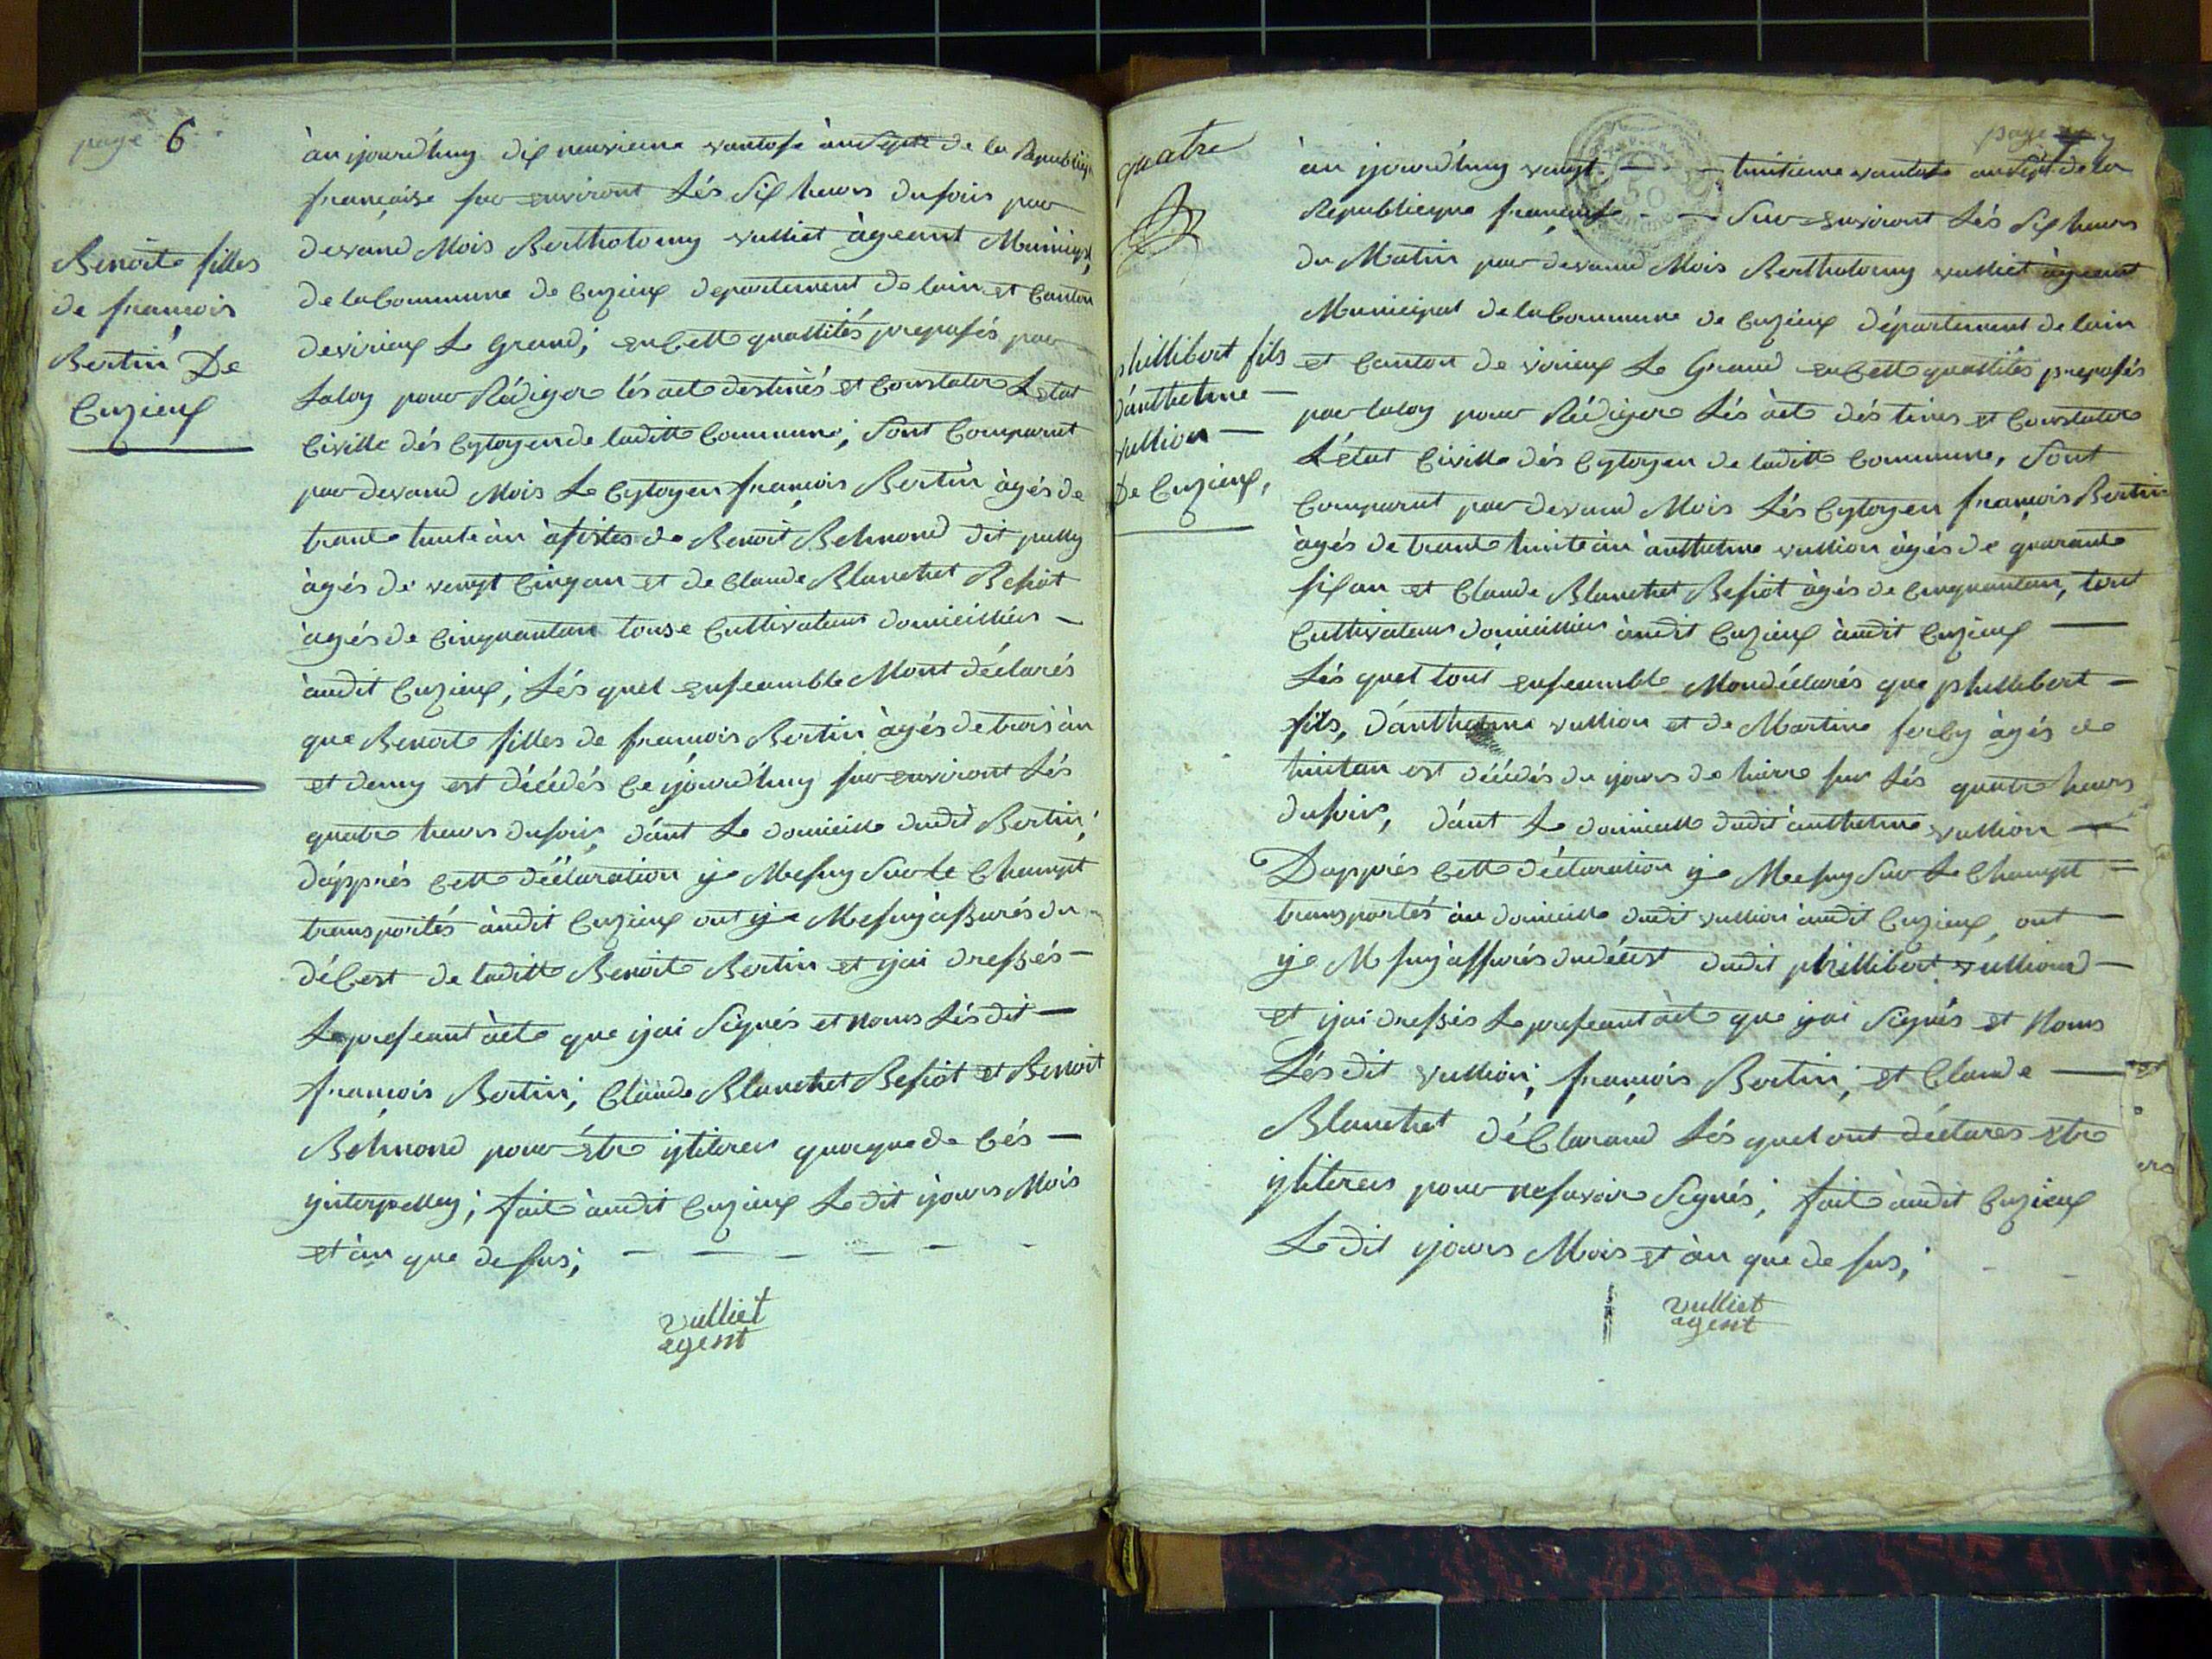 page 6
Benoite filles
de francois
Bertin De
Cuzieux
àu ijourd'huy dix neuvieme vantose àn Septe de la Republiq
francaise sur environt Lés Six heurs dusoir par
devand Mois Bertholomy vulliet àgeant Municipal
de la Commune de Cuzieux departement de lain et Canton
devirieux Le Grand; en Cette quallités preposés par
Laloy pour Rédiger lés acte destinés et Constater L'etat
Civille dés Cytoyen de laditte Commune; Sont Comparut
par devand Mois Le Cytoyen francois Bertin àgés de
trante huite àn àsistés de Benoit Belmond dit pully
àgés de vengt Cinq an et de Claude Blanchet Besiot
àgés de Cinquantan touse Cultivateur domicillier
àudit Cuzieux; Lés quel enseamble Mont déclarés
que Benoite filles de francois Bertin àgés de trois àn
et demy est décédés Ce ijourd'huy sur environt Lés
quatre heurs dusoir, dant Le domicille dudit Bertin;
dapprés Cette déclaration ije Mesuy Sur le Champt
transportés àudit Cuzieux out ije Mesuy àssurés du
déCest de laditte Benoite Bertin et ijai dressés
Le preseant àcte que ijai Signés et nonts Lés dit
francois Bertin; Claude Blanchet Besiot et Benoit
Belmond pour être ijliterer quoyque de Cés
ynterpelley; fait àudit Cuzieux Le dit ijours Mois
et àn que de sus;
vulliet
agent
quatre
page 7
50
phillibert fils
d'anthelme
vullion
De Cuzieux,
àu ijourd'huy vengt huitieme vantose an Sept de la
Republicque francaise Sur environt Lés Six heurs
du Matin par devand Mois Bertholomy vulliet àgeant
Municipal de la Commune de Cuzieux département de lain
et Canton de virieux Le Grand en Cette quallités preposés
par laloy pour Rédiger Lés àcte dés tinés et Constater
L'état Civille dés Cytoyen de laditte Commune, Sont
Comparut par devand Mois Lés Cytoyen francois Bertin
àgés de trante huite àn anthelme vullion àgés de quarante
six an et Claude Blanchet Besiot àgés de Cinquantan, tout
Cultivateur domicillier àudit Cuzieux àudit Cuzieux
Lés quel tout enseamble Mon déclarés que phillibert
fils, d'anthelme vullion et de Martine àgés de
huitan est décédés du ijours de hierre sur Lés quatre heurs
dusoir, dant Le domicille dudit anthelme vullion
Dapprés Cette déclaration ije Mesuy Sur Le Champt
transportés àu domicille dudit vullion àudit Cuzieux, out
ije Msuy àssurés dudécest dudit phillibert vulliond
et ijai dressés Le preseant àcte que ijai Signés et Nonts
Lés dit vullion; francois Bertin; et Claude
Blanchet déClarand Lés quel ont déclares etre
ijliterers pour nesavoir Signés; fait àudit Cuzieux
Le dit ijours Mois et àn que de sus;
vulliet
agent